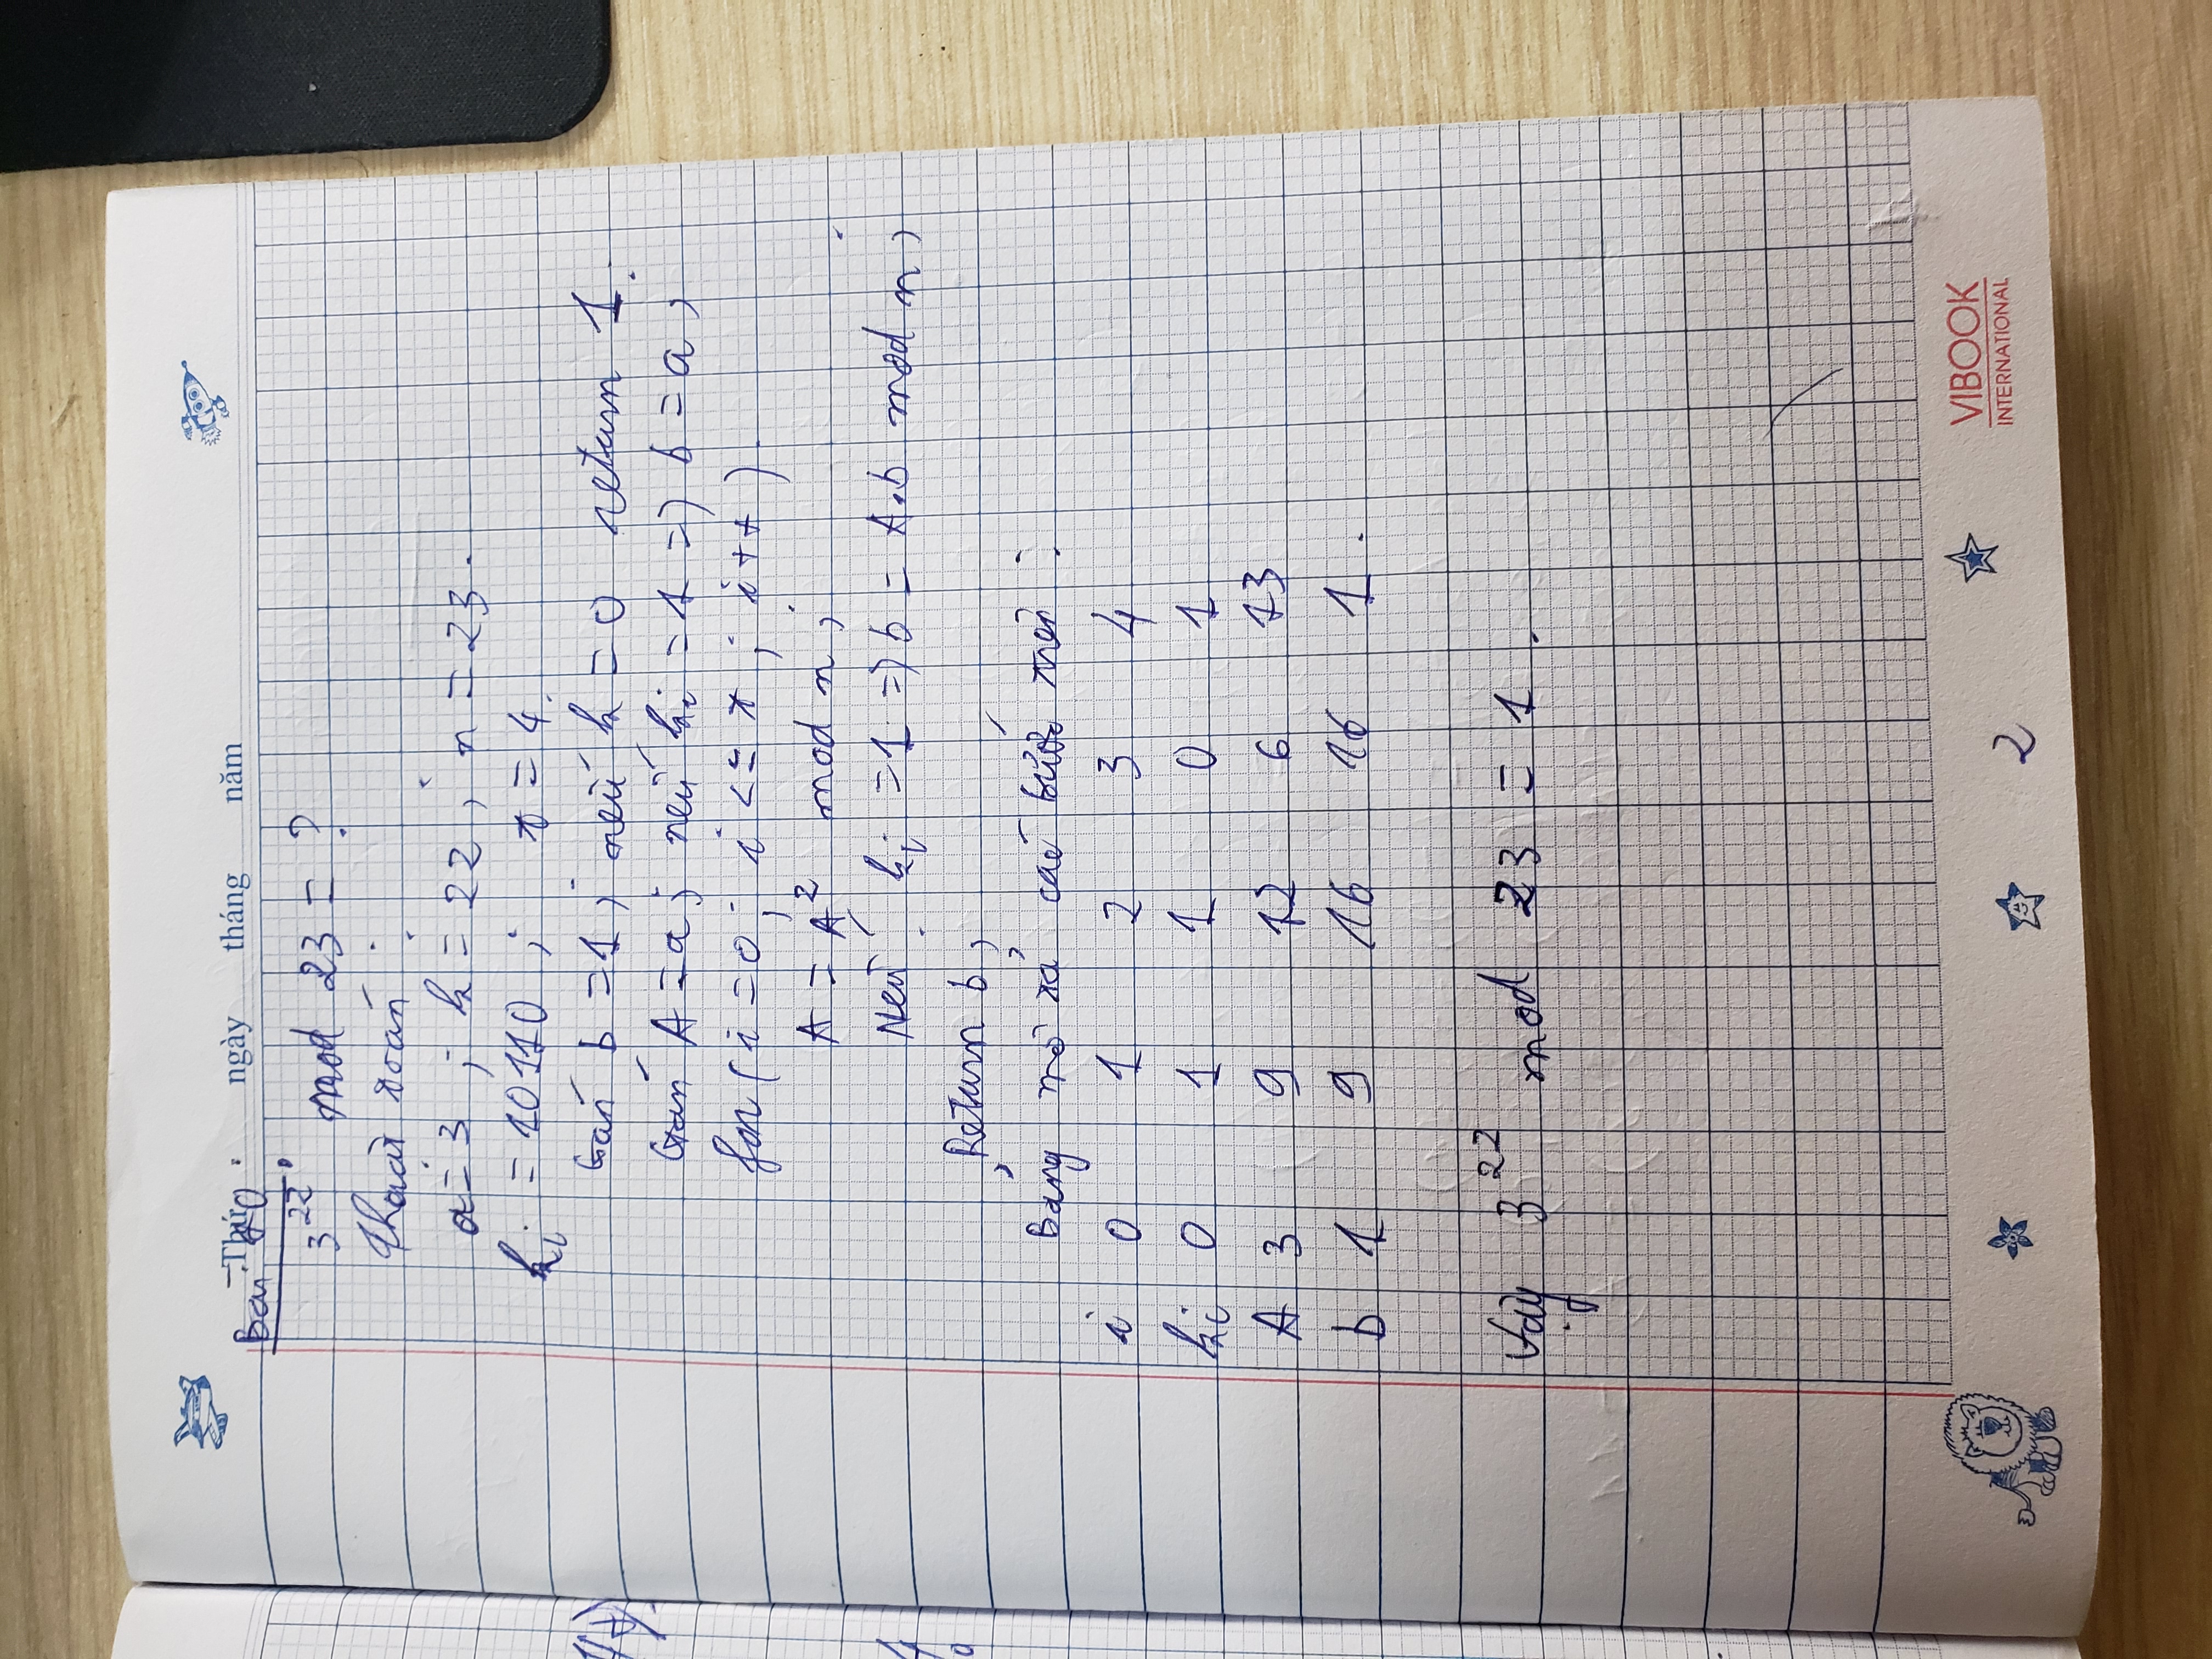 Thứ ngày tháng năm
Bài 10:
3^22 mod 23 = ?
Thuật toán:
a = 3 ; k = 22 ; n = 23.
ki = 10110 ; t = 4.
Gán b = 1 ; nếu k = 0 return 1.
Gán A = a ; nếu ki = 1 => b = a ;
for (i = 0 ; i <= t ; i++)
A = A² mod n ;
Nếu ki = 1 => b = A.b mod n ;
Return b ;
Bảng mô tả các bước trên :
i 0 1 2 3 4
ki 0 1 1 0 1
A 3 9 12 6 13
b 1 9 16 16 1 .
Vậy 3^22 mod 23 = 1 .
2
VIBOOK
INTERNATIONAL